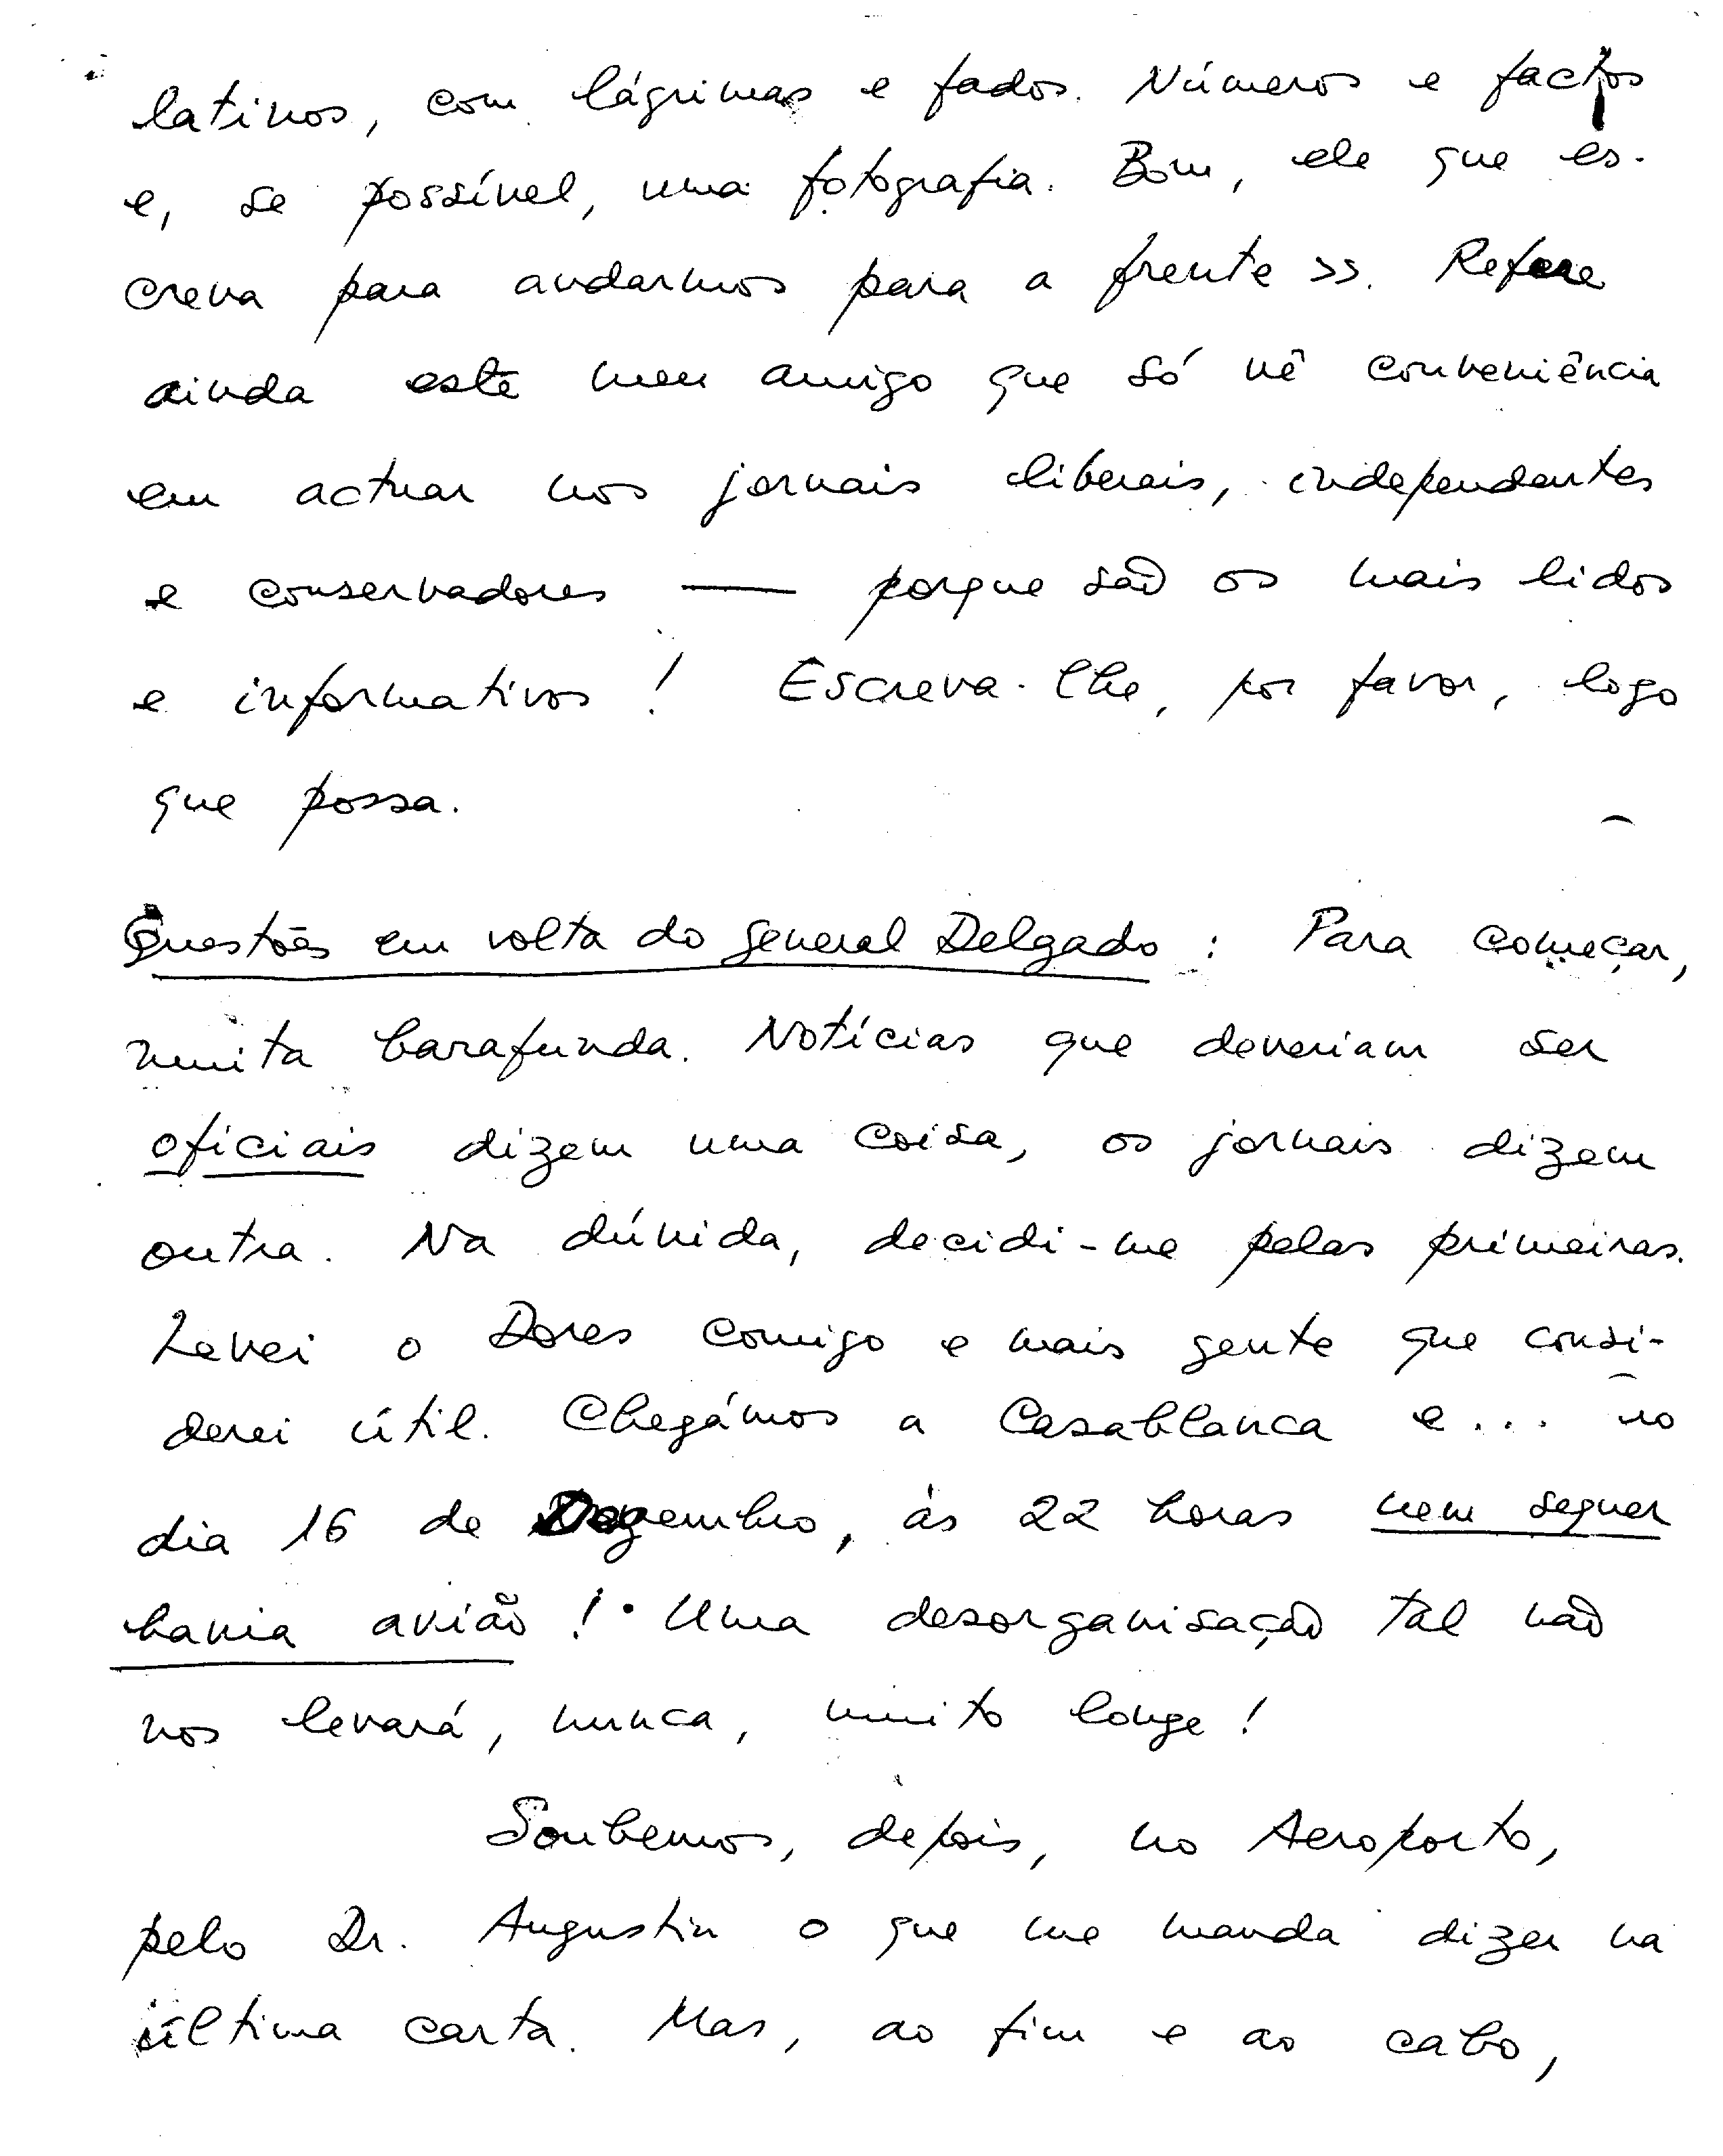 latinos, com lágrimas e fados. Números e factos
e, se possível, uma fotografia. Bom, ele que es-
creva para andarmos para a frente >>. Refere
ainda este meu amigo que só vê conveniência
em actuar nos jornais liberais, independentes
e conservadores — porque são os mais lidos
e informativos! Escreva-lhe, por favor, logo
que possa.
Questões em volta do general Delgado: Para começar,
muita barafunda. Notícias que deveriam ser
oficiais dizem uma coisa, os jornais dizem
outra. Na dúvida, decidi-me pelas primeiras.
Levei o Dores comigo e mais gente que consi-
derei útil. Chegámos a Casablanca e... no
dia 16 de Dezembro, às 22 horas nem sequer
havia avião! Uma desorganisação tal não
nos levará, nunca, muito longe!
Soubemos, depois, no Aeroporto,
pelo Dr. Augustin o que me manda dizer na
última carta. Mas, ao fim e ao cabo,